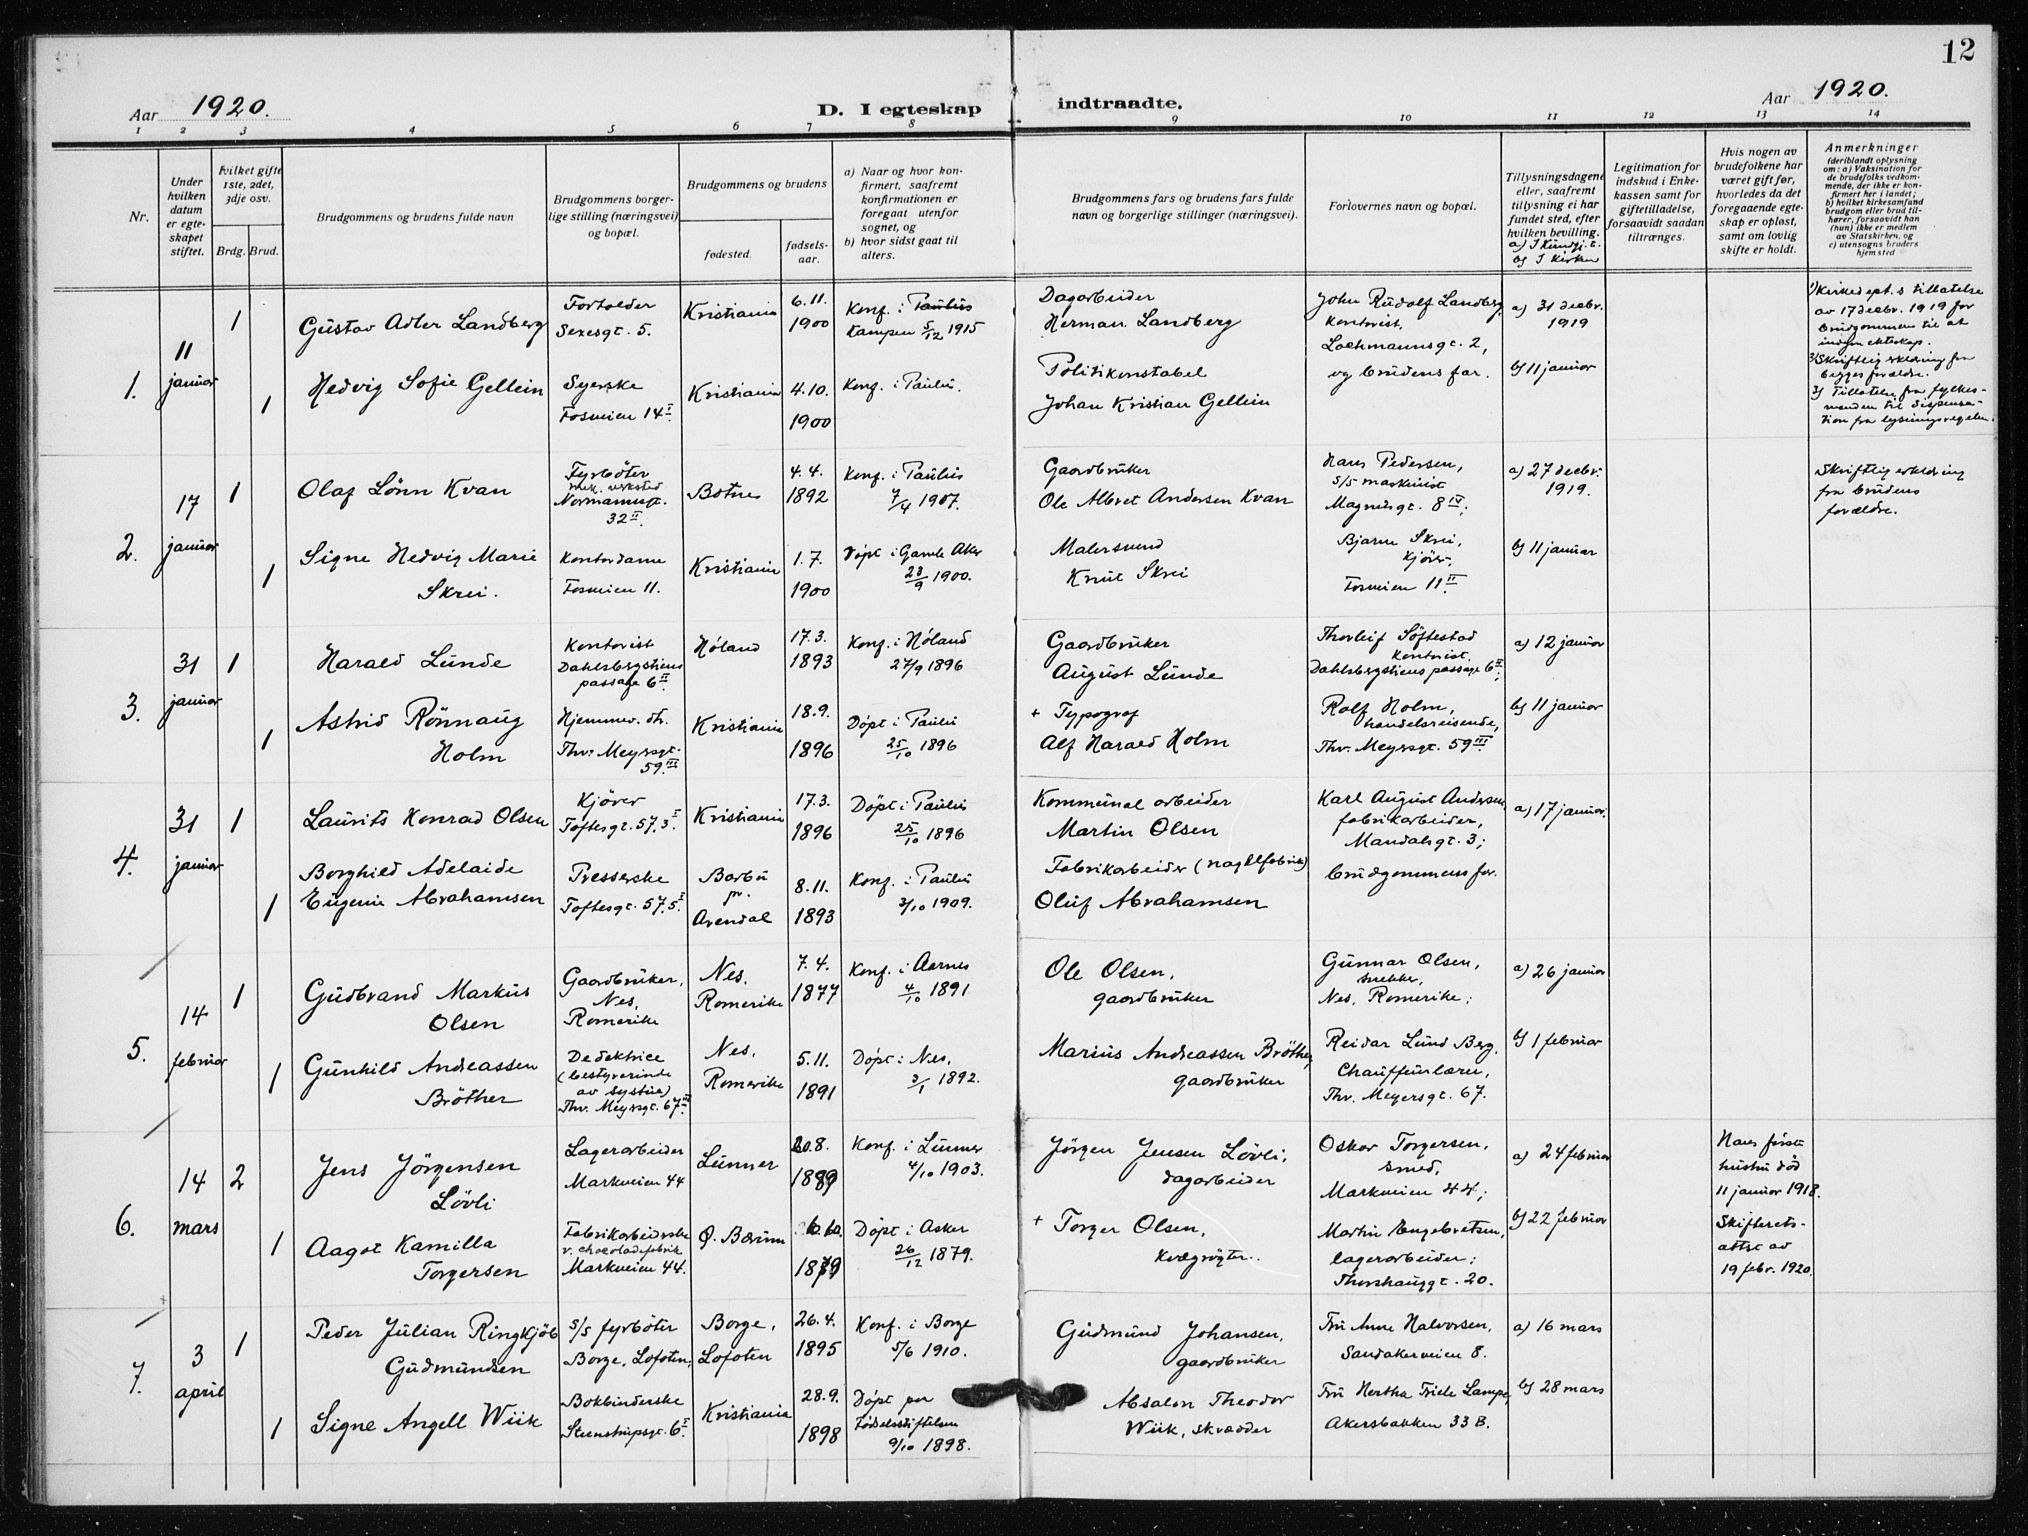 12
Aar 1920.
D. I egteskap indtraadte.
Aar 1920.
1 2 3 4 5 6 7 8 9 10 11 12 13 14
Nr.
Under
hvilken
datum
er egte-
skapet
stiftet.
hvilket gifte
1ste, 2det,
3dje osv.
Brdg. Brud.
Brudgommens og brudens fulde navn
Brudgommens borger-
lige stilling (næringsvei)
og bopæl.
Brudgommens og brudens
fødested.
fødsels-
aar.
a) Naar og hvor kon-
firmert, saafremt
konfirmationen er
foregaat utenfor
sognet, og
b) hvor sidst gaat til
alters.
Brudgommens fars og brudens fars fulde
navn og borgerlige stillinger (næringsvei).
Forlovernes navn og bopæl.
Tillysningsdagene
eller, saafremt
tillysning ei har
fundet sted, efter
hvilken bevilling.
b) I kirken
Legitimation for
indskud i Enke-
kassen samt for
giftetilladelse,
forsaavidt saadan
tiltrænges.
Hvis nogen av
brudefolkene har
været gift før,
hvorledes da det
foregaaende egte-
skap er opløst,
samt om lovlig
skifte er holdt.
Anmerkninger
(deriblandt oplysning
om: a) Vaksination for
de brudefolks vedkom-
mende, der ikke er kon-
firmert her i landet;
b) hvilket kirkesamfund
brudgom eller brud til-
hører, forsaavidt han
(hun) ikke er medlem
av Statskirken, og
c) utensogns bruders
hjemsted
1.
11
januar
1
Gustav Adler Landberg
Fortolder
Sexesgt. 5.
Kristiania
6.11.
1900
Konf. i Paulus
Kampen 5/12 1915
Dagarbeider
Herman Landberg
John Rudolf Landberg,
kontorist,
Lochmannsgt. 2,
a) 31 decbr.
1919
1) Kirkedept.s tillatelse
av 17 decbr. 1919 for
brudgommen til at
indgaa ekteskap.
2) Skriftlig erklæring fra
begges forældre.
3) Tillatelse fra fylkes-
manden til dispensa-
tion fra lysningsregelen.
1
Hedvig Sofie Gellein
Syerske
Fosveien 14 I.
Kristiania
4.10.
1900
Konf. i Paulus.
Politikonstabel
Johan Kristian Gellein
og brudens far.
b) 11 januar
2.
17
januar
1
Olaf Lönn Kvan
Fyrböter
mek. verksted
Normannsgt.
32 II.
Botne
4.4.
1892
Konf. i Paulus
7/4 1907.
Gaardbruker
Ole Albret Andersen Kvan
Hans Pedersen,
s/s maskinist
Magnusgt. 8 IV;
a) 27 decbr.
1919.
Skriftlig erklæring
fra brudens
forældre.
1
Signe Hedvig Marie
Skrei.
Kontordame
Fosveien 11.
Kristiania
1.7.
1900
Döpt i Gamle Aker
23/9 1900.
Malersvend
Knut Skrei
Bjarne Skrei,
Kjörer,
Fosveien 11 II.
b) 11 januar
3.
31
januar
1
Harald Lunde
Kontorist
Dahlsbergstiens
passage 6 II.
Höland
17.3.
1893
Konf. i Höland
27/9 1896
Gaardbruker
August Lunde
Thorleif Söftestad
kontorist.
Dahlsbergstiens passage 6 II;
a) 12 januar
1
Astrid Rönnaug
Holm
Hjemmev. dt.
Thv. Meyersgt.
59 III
Kristiania
18.9.
1896
Döpt i Paulus
25/10 1896
+ Typograf
Alf Harald Holm
Rolf Holm,
handelsreisende,
Thv. Meyersgt. 59 III.
b) 11 januar
4.
31
januar
1
Laurits Konrad Olsen
Kjörer
Toftesgt. 57, 3 I.
Kristiania
17.3.
1896
Döpt i Paulus
25/10 1896
Kommunal arbeider
Martin Olsen
Karl August Andersen,
fabrikarbeider,
Mandalsgt. 3;
a) 17 januar.
1
Borghild Adelaide
Eugenie Abrahamsen
Presserske
Toftesgt. 57, 5 I.
Barbu
pr.
Arendal
8.11.
1893
Konf. i Paulus
3/10 1909.
Fabrikarbeider (naglefabrik)
Oluf Abrahamsen
brudgommens far.
5.
14
februar
1
Gudbrand Markus
Olsen
Gaardbruker,
Nes,
Romerike
Nes.
Romerike
7.4.
1877
Konf. i Aarnes
4/10 1891
Ole Olsen,
gaardbruker
Gunnar Olsen,
snekker,
Nes, Romerike;
a) 26 januar
1
Gunhild Andreassen
Bröther
Dedektrice
(bestyrerinde
av systue)
Thv. Meyersgt. 67 III
Nes.
Romerike
5.11.
1891
Döpt i Nes.
3/1 1892.
Marius Andreassen Bröther,
gaardbruker
Reidar Lund Berg,
Chauffeurlærer,
Thv. Meyersgt. 67.
b) 1 februar
6.
14
mars
2
Jens Jörgensen
Lövli
Lagerarbeider
Markveien 44
Lunner
20.8.
1889
Konf. i Lunner
4/10 1903.
Jörgen Jensen Lövli,
dagarbeider
Oskar Torgersen,
smed,
Markveien 44;
a) 24 februar
Hans första
hustru död
11 januar 1918.
1
Aagot Kamilla
Torgersen
Fabrikarbeiderske
v. chocoladefabrik
Markveien 44.
Ø. Bærum
1879
Döpt i Asker
26/12 1879.
+ Torger Olsen,
kvægrögter.
Martin Engebretsen,
lagerarbeider;
Thorshauggt. 20.
b) 22 februar
Skifterets-
attst av
19 febr. 1920.
7.
3
april
1
Peder Julian Ringkjöb
Gudmundsen
s/s fyrböter
Borge, Lofoten.
Borge,
Lofoten
26.4.
1895
Konf. i Borge
5/6 1910.
Gudmund Johansen,
gaardbruker
Fru Anne Halvorsen,
Sandakerveien 8.
a) 16 mars
1
Signe Angell Wiik
Bokbinderske
Steenstrupsgt. 6 I.
Kristiania
28.9.
1898
Döpt paa
Födselsstiftelsen
9/10 1898.
Absalon Theodor
Wiik, skrædder
Fru Hertha Lampe,
Akersbakken 33 B.
b) 28 mars